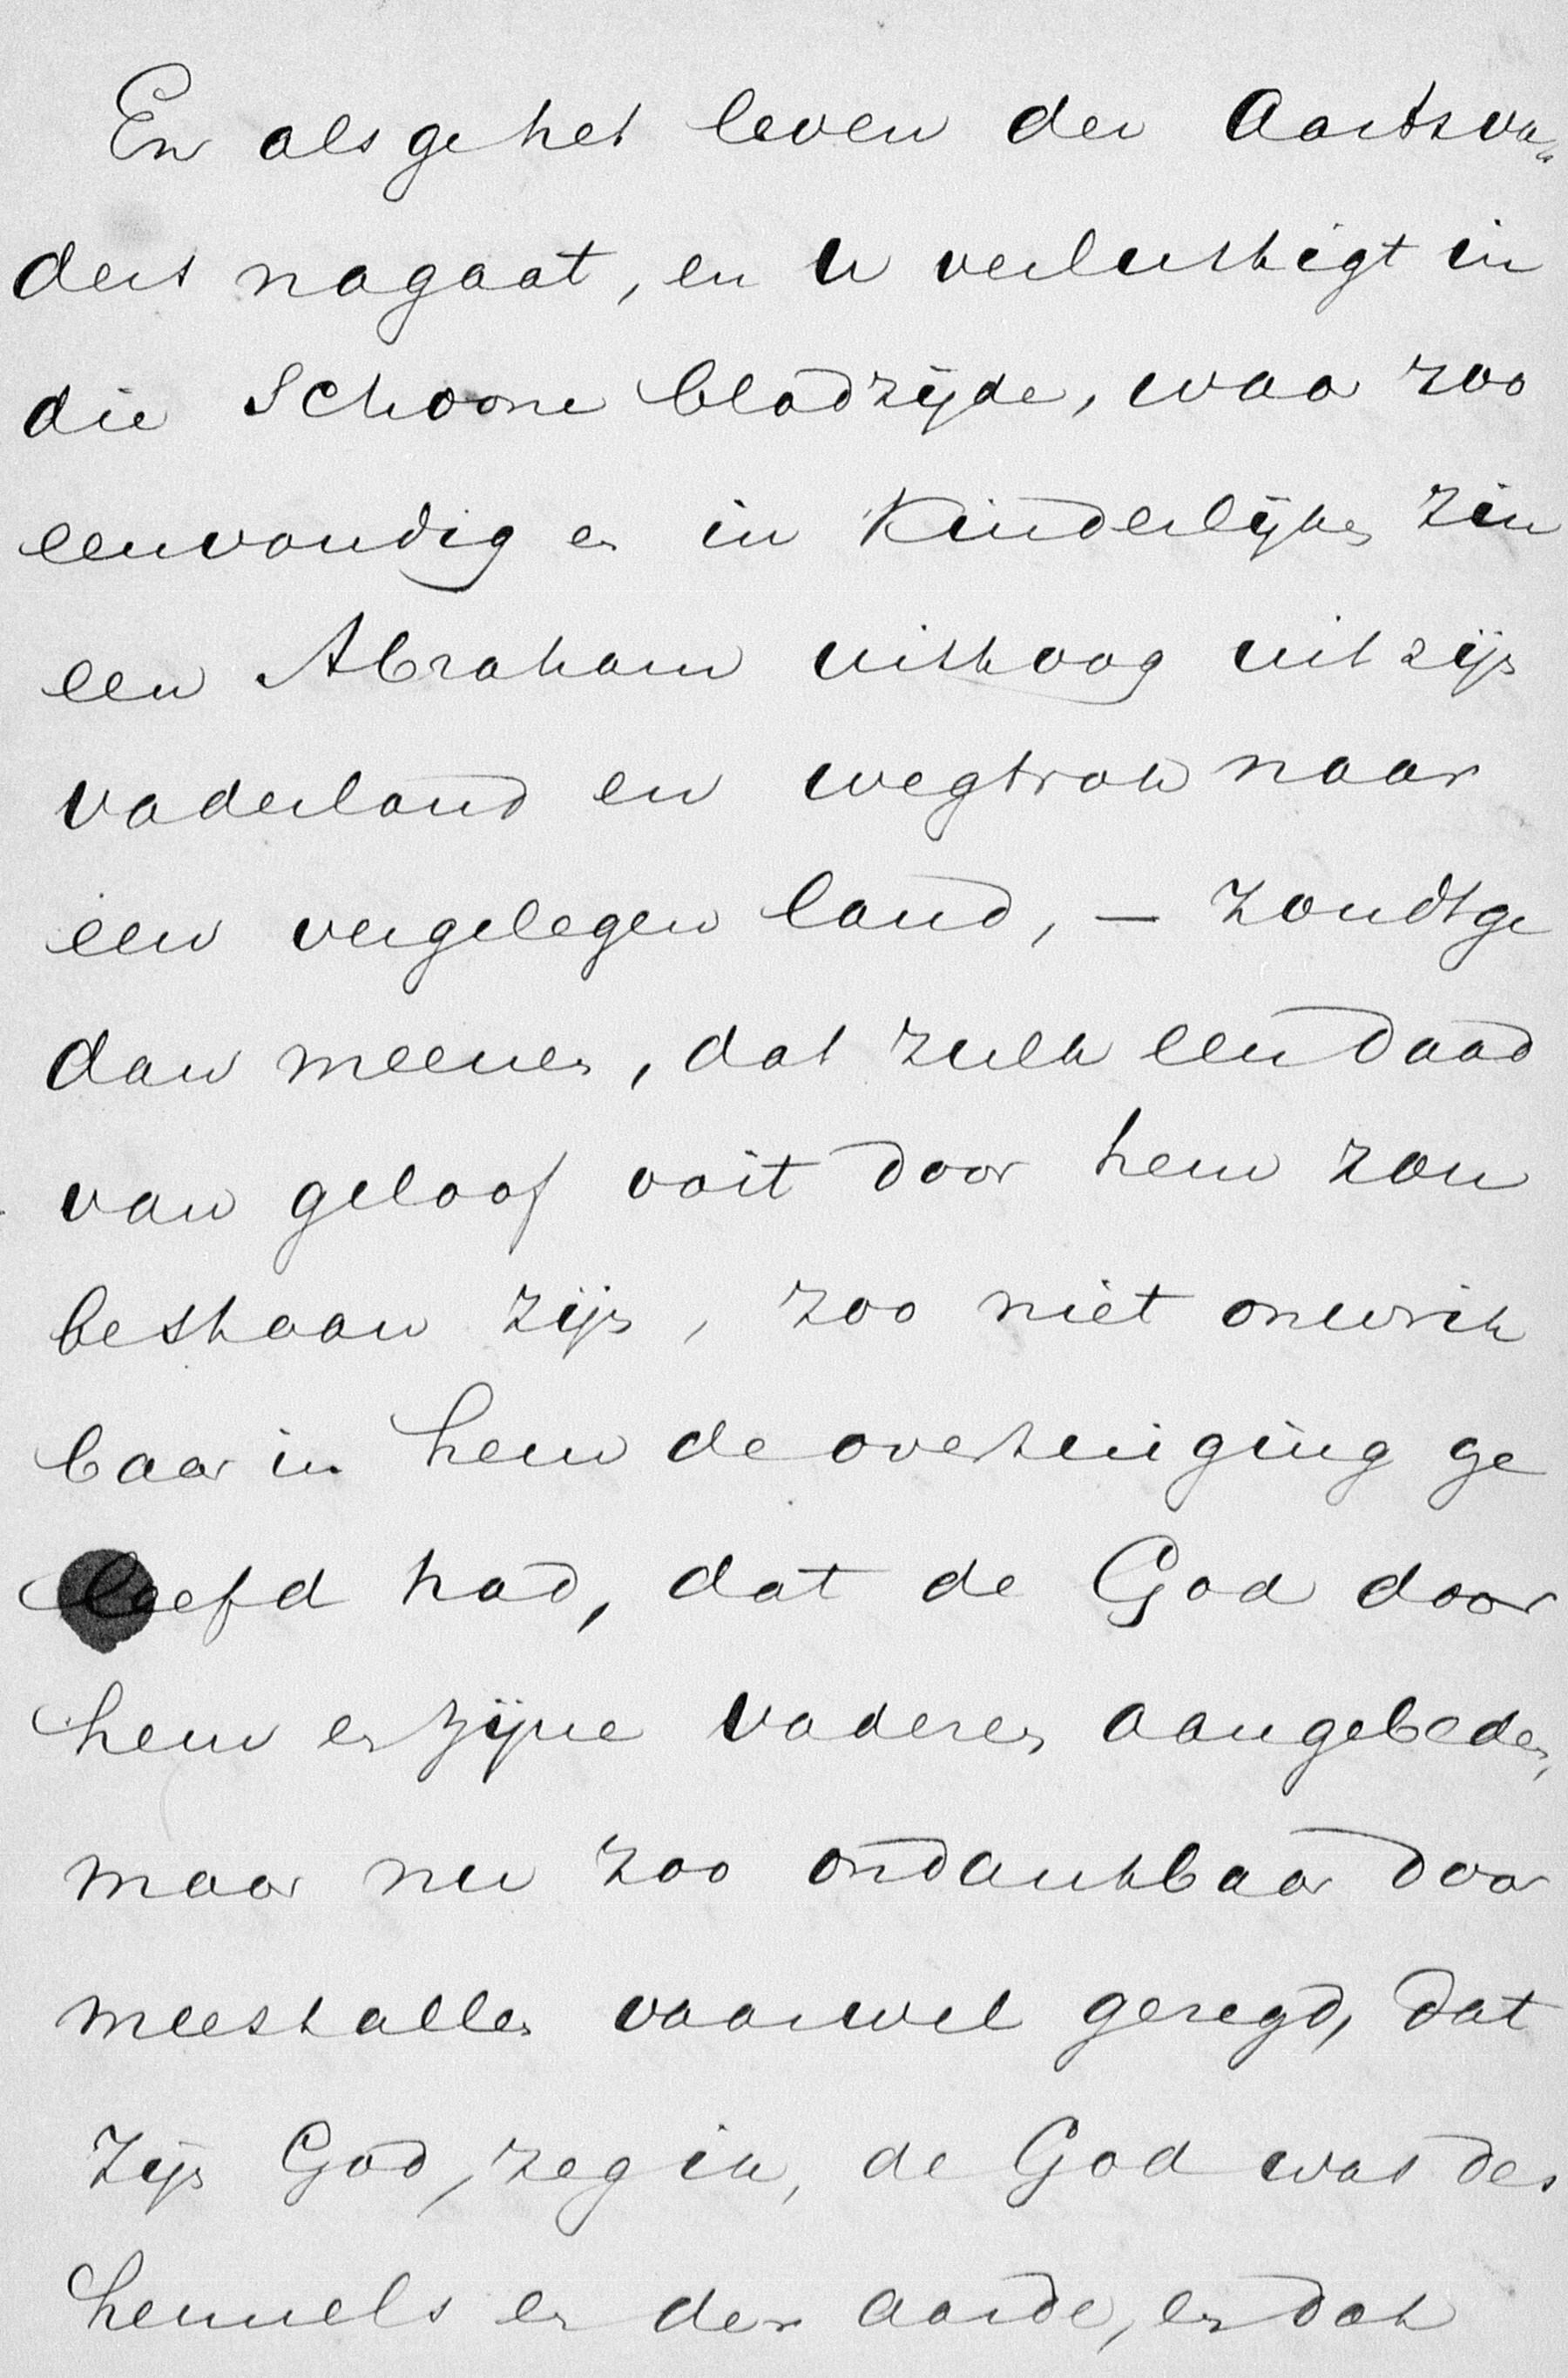 En als ge het leven der Aartsva„
ders nagaat, en U verlustigt in
die Schoone bladzijde, waar zoo
eenvoudig en in Kinderlijken zin
een Abraham uittoog uit zijn
vaderland en wegtrok naar
een vergelegen land, – zoudt ge
dan meenen, dat zulk een daad
van geloof ooit door hem zou
bestaan zijn, zoo niet onwrik
baar in hem de overtuiging ge
leefd had, dat de God door
hem en zijne vaderen aangebeden,
maar nu zoo ondankbaar door
meest allen vaarwel gezegd, dat
zijn God, zeg ik, de God was des
hemels en der aarde, en dat